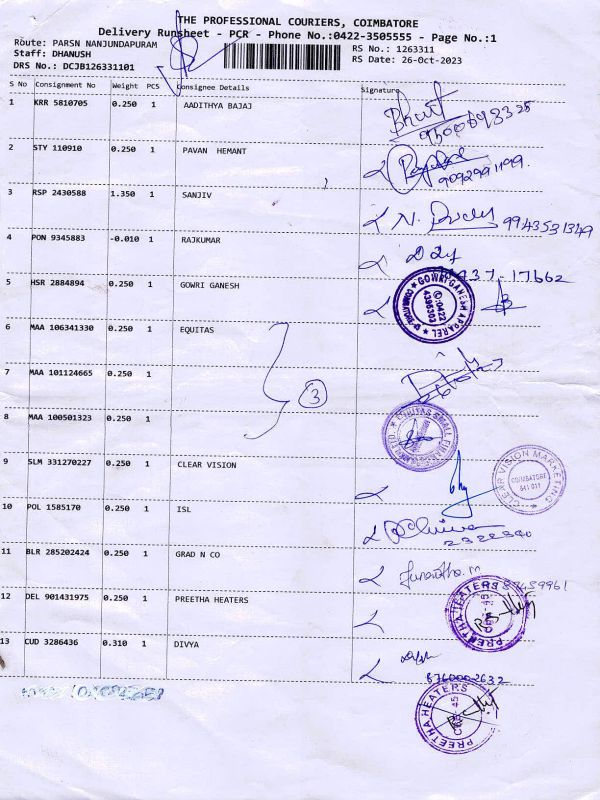 THE PROFESSIONAL COURIERS, COIMBATORE
Delivery Runsheet - PCR - Phone No.:0422-3505555 - Page No.:1
Route: PARSN NANJUNDAPURAM
RS No.: 1263311
Staff: DHANUSH
RS Date: 26-Oct-2023
DRS No.: DCJB126331101
S No Consignment No Weight PCS Consignee Details Signature
1 KRR 5810705 0.250 1 AADITHYA BAJAJ
2 STY 110910 0.250 1 PAVAN HEMANT
9092991199
3 RSP 2430588 1.350 1 SANJIV
9943531349
4 PON 9345883 -0.010 1 RAJKUMAR
5 HSR 2884894 0.250 1 GOWRI GANESH
GOWRI GANESH APPAREL
6 MAA 106341330 0.250 1 EQUITAS
7 MAA 101124665 0.250 1
3
8 MAA 100501323 0.250 1
9 SLM 331270227 0.250 1 CLEAR VISION
CLEAR VISION MARKETING
COIMBATORE
641 011
10 POL 1585170 0.250 1 ISL
11 BLR 285202424 0.250 1 GRAD N CO
12 DEL 901431975 0.250 1 PREETHA HEATERS
PREETHA HEATERS
13 CUD 3286436 0.310 1 DIVYA
8760002632
PREETHA HEATERS
CBE - 45